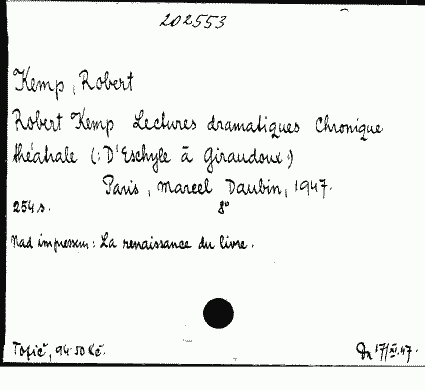 202553
Kemp, Robert
Robert Kemp Lectures dramatiques Chronique
théâtrale (:D'Eschyle à Giraudoux)
Paris, Marcel Daubin, 1947.
254 s. 8°
Nad impressum: La renaissance du livre.
Topič, 94·50 Kč. 17/XI.47.